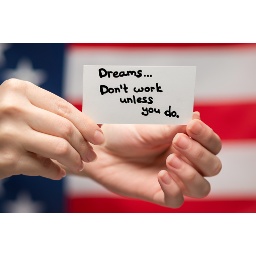 Dreams...
Don't work
unless
you do.